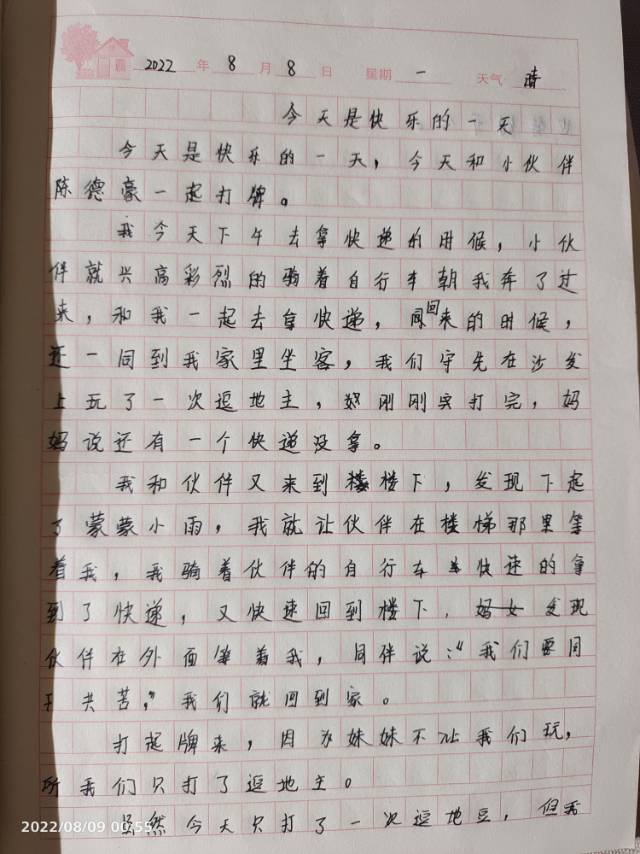 2022 年 8 月 8 日 星期 一 天气 晴
今天是快乐的一天
今天是快乐的一天，今天和小伙伴
陈德豪一起打牌。
我今天下午去拿快递的时候，小伙
伴就兴高彩烈的骑着自行车朝我奔了过
来，和我一起去拿快递，回来的时候，
还一同到我家里坐客，我们守先在沙发
上玩了一次逗地主，刚刚打完，妈
妈说还有一个快递没拿。
我和伙伴又来到楼下，发现下起
了蒙蒙小雨，我就让伙伴在楼梯那里等
着我，我骑着伙伴的自行车快速的拿
到了快递，又快速回到楼下，发现
伙伴在外面等着我，同伴说："我们要同
甘共苦，"我们就回到家。
打起牌来，因为妹妹不让我们玩，
所我们只打了逗地主。
虽然今天只打了一次逗地主，但我
2022/08/09 00:55